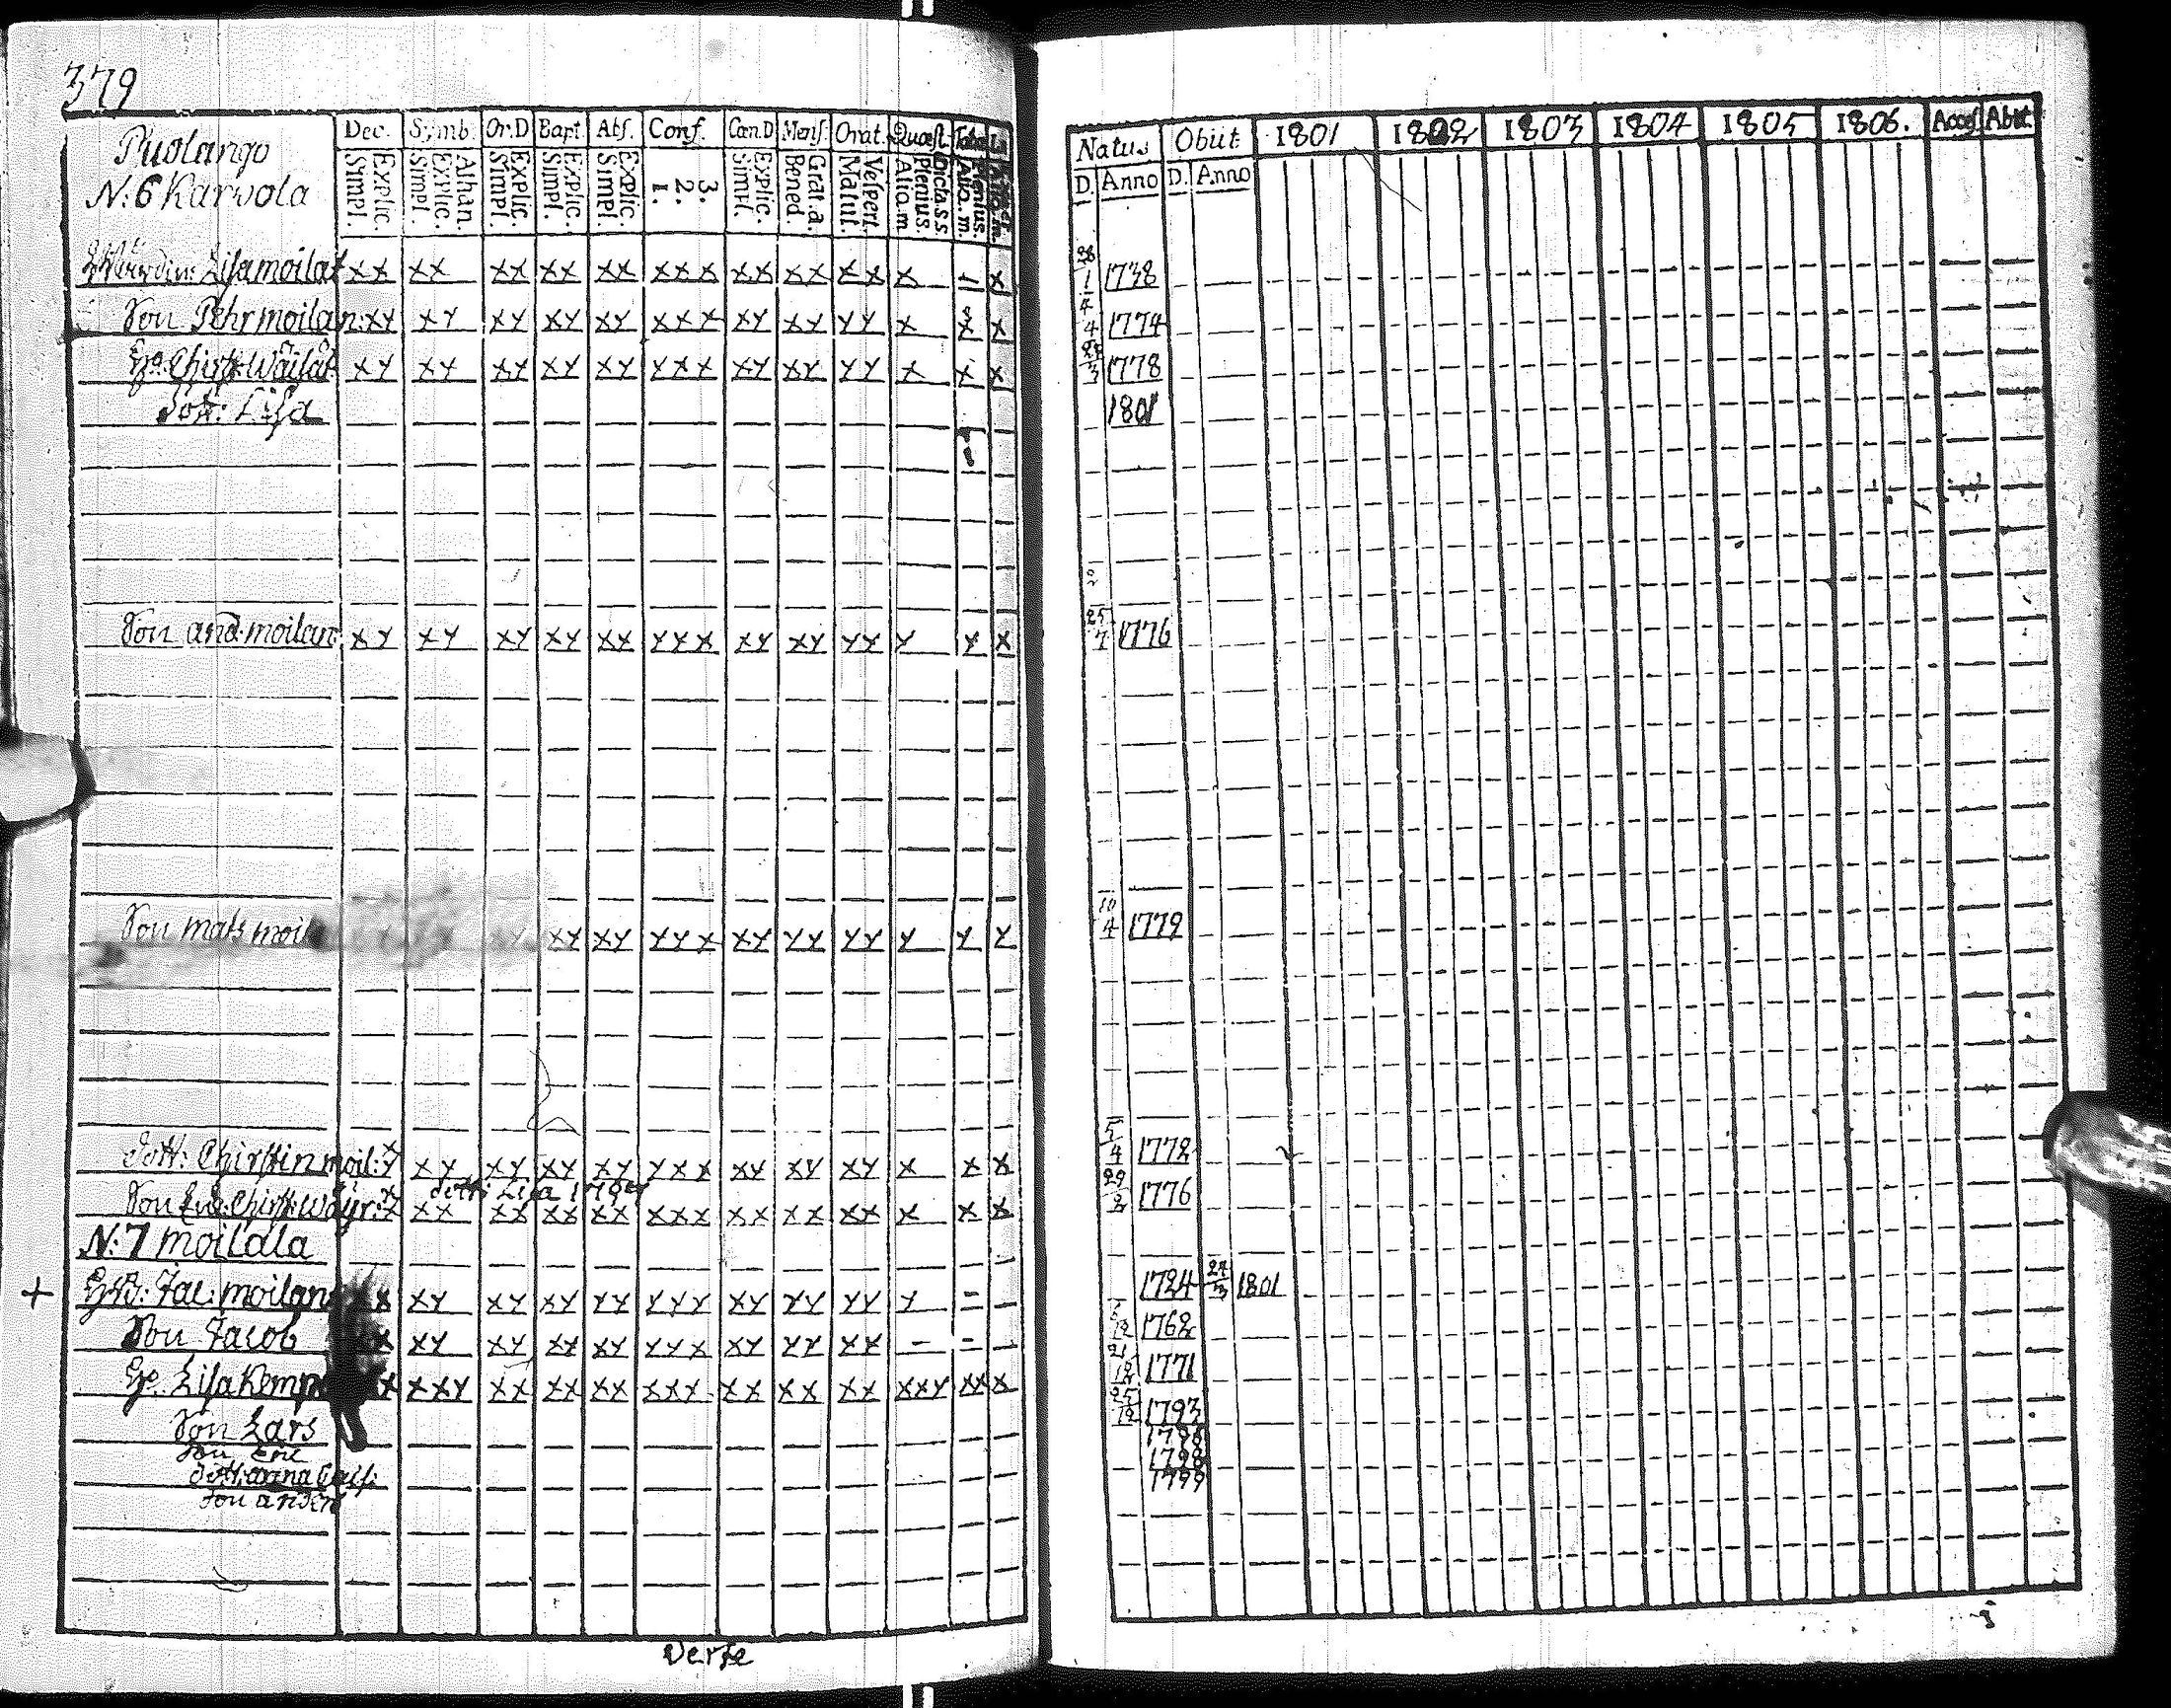 379
Puolango
N:6 Karvola
Dec. Symb. Or.D Bapt. Abs. Conf. Cœn.D Mens. Orat. Quæst.
Simpl. Explic. Simpl. Explic. Athan. Simpl. Explic. Simpl. Explic. Simpl. Explic. 1. 2. 3. Simpl. Explic. Bened. Grat.a. Matut. Vespert. Alio.m Plenius. Dicta.s.s
Natus Obiit 1801 1802 1803 1804 1805 1806. Access Abiit
D. Anno D. Anno
Lisa moilat xx xx xx xx xx xxx xx xx xx x – x 28/1 1738
Son Pehr moilan: xx xx xx xx xx xxx xx xx xx x x x 4 1774
Chirst: Wäilat xx xx xx xx xx xxx xx xx xx x x x 3 1778
dot: Lisa 1801
Son and: moilan xx xx xx xx xx xxx xx xx xx x x x 25/7 1776
Son mats moil xx xx xxx xx xx xx x x x 10/4 1779
dott: Chirstin moil: xx xx xx xx xxx xx xx xx x x x 5/4 1772
dott: Lisa
Son xx xx xx xx xxx xx xx xx x x x 29/2 1776
N:7 moilala
+ Jac: moilan x xx xx xx xx xxx xx xx xx x – 1724 24/3 1801
Son Jacob x xx xx xx xx xxx xx xx xx – – 1762
Lisa Kemp x xxx xx xx xx xxx xx xx xx xxx xx x 21/12 1771
Son Lars 25/12 1793
Son Eric
dott: anna 1798
Son anders 1799
Verte